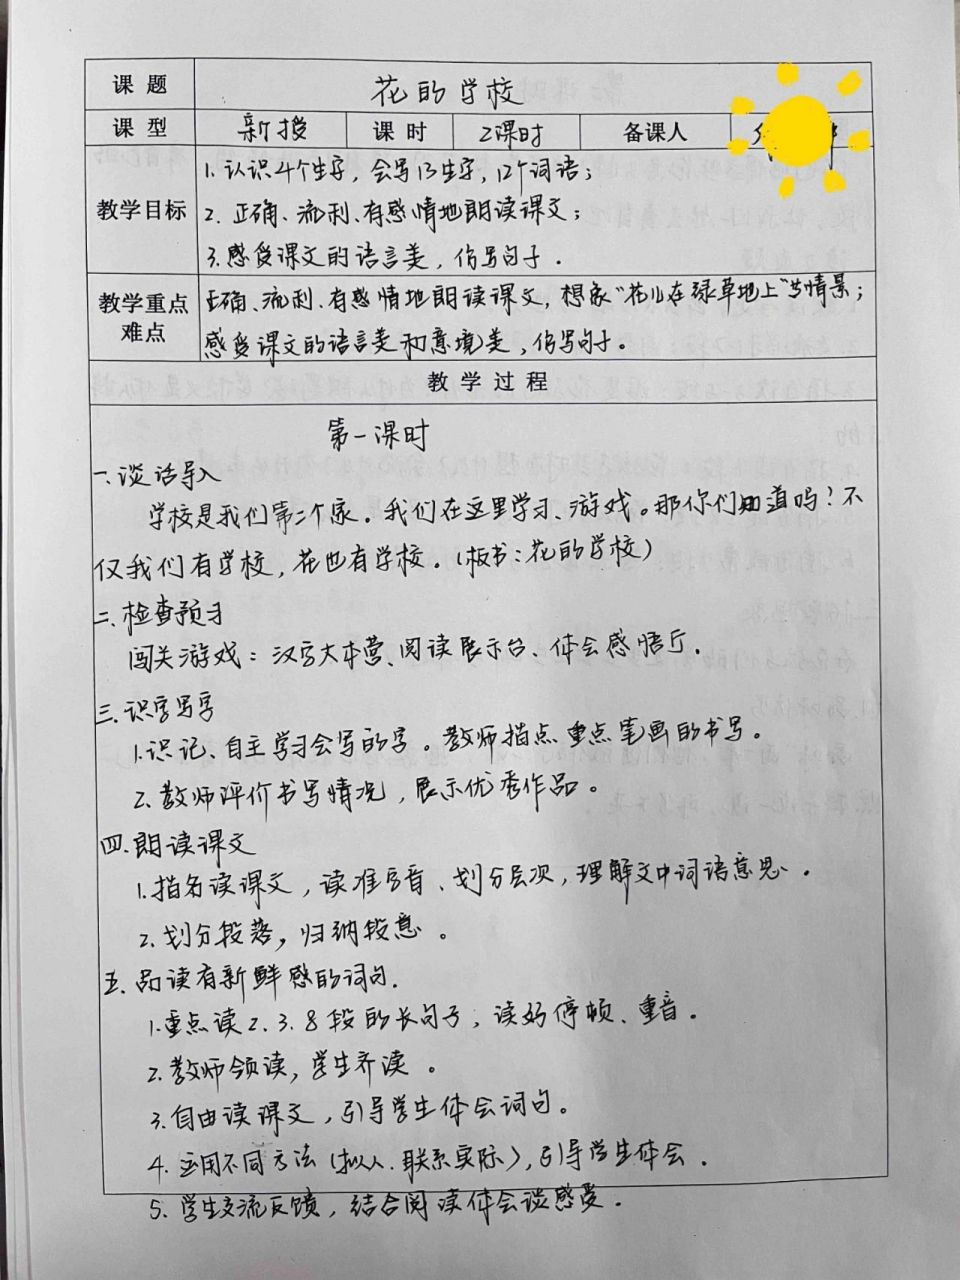 课题 花的学校
课型 新授 课时 2课时 备课人
教学目标
1.认识4个生字，会写13生字，12个词语；
2.正确、流利、有感情地朗读课文；
3.感受课文的语言美，仿写句子.
教学重点难点
正确、流利、有感情地朗读课文，想象“花儿在绿草地上”的情景；
感受课文的语言美和意境美，仿写句子。
教学过程
第一课时
一.谈话导入
学校是我们第二个家.我们在这里学习、游戏.那你们知道吗？不
仅我们有学校，花也有学校.（板书：花的学校）
二.检查预习
闯关游戏：汉字大本营、阅读展示台、体会感悟厅.
三.识字写字
1.识记、自主学习会写的字。教师指点重点笔画的书写。
2.教师评价书写情况，展示优秀作品。
四.朗读课文
1.指名读课文，读准字音、划分层次，理解文中词语意思.
2.划分段落，归纳段意.
五.品读有新鲜感的词句.
1.重点读2.3.8段的长句子，读好停顿、重音.
2.教师领读，学生齐读.
3.自由读课文，引导学生体会词句。
4.运用不同方法（拟人.联系实际），引导学生体会.
5.学生交流反馈，结合阅读体会谈感受.